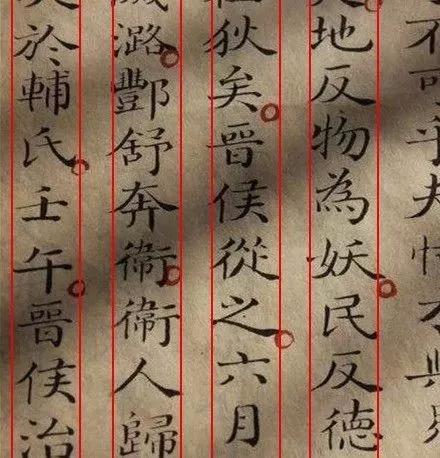 不可乎夫恃才與
地反物為妖民反德
狄矣晉侯從之六月
潞酆舒奔衛衛人歸
於輔氏壬午晉侯治